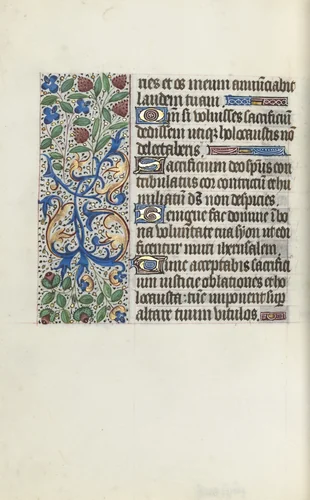 ries et os meum annunciabit
laudem tuam.
Qm si voluisses sacrificiū
dedissem utiqȝ holocaustis nō
delectaberis.
Sacrificium deo spūs con
tribulatus cor contritū et hu
miliatū ds̄ non despicies.
Benigne fac domine ī bo
na voluntate tua syon ut edi
ficentur muri iherusalem.
Tunc acceptabis sacrifici
um iusticie oblationes et ho
locausta: tūc imponent sup̄
altare tuum vitulos.